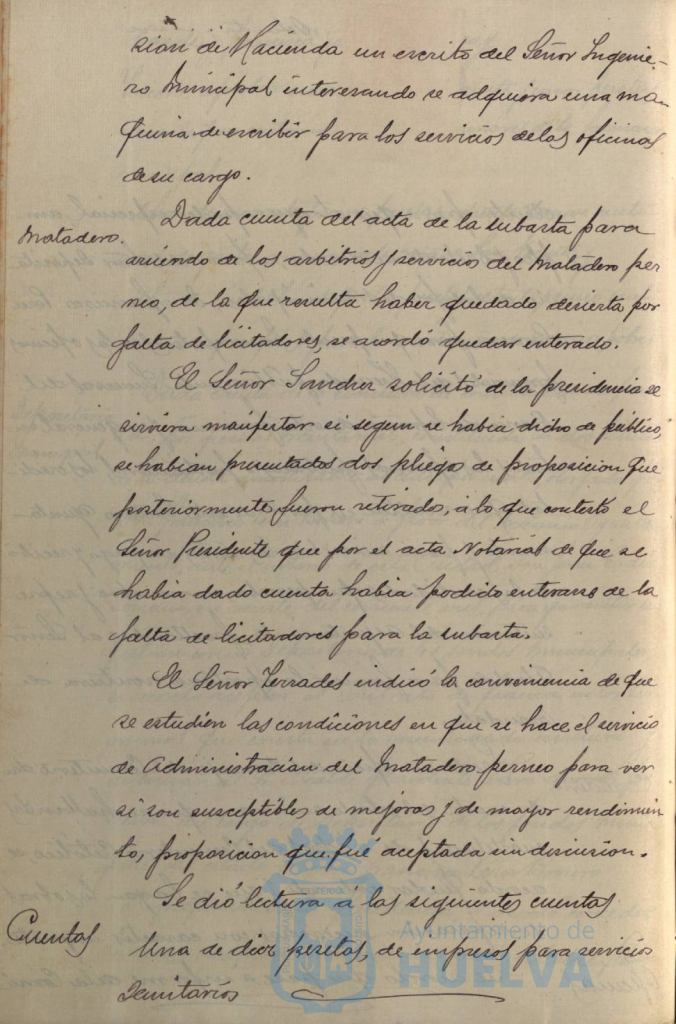 sion de Hacienda un escrito del Señor Ingenie-
ro Municipal interesando se adquiera una ma-
quina de escribir para los servicios de las oficinas
de su cargo.
Matadero.
Dada cuenta del acta de la subasta para
arriendo de los arbitrios y servicios del Matadero per
neo, de la que resulta haber quedado desierta por
falta de licitadores, se acordó quedar enterado.
El Señor Sanchez solicitó de la presidencia se
sirviera manifestar si segun se habia dicho de público,
se habian presentados dos pliegos de proposicion que
posteriormente fueron retirados, á lo que contestó el
Señor Presidente que por el acta Notarial de que se
habia dado cuenta habia podido enterarse de la
falta de licitadores para la subasta.
El Señor Terrades indicó la conveniencia de que
se estudien las condiciones en que se hace el servicio
de Administracion del Matadero perneo para ver
si son susceptibles de mejoras y de mayor rendimien
to, proposicion que fué aceptada sin discusion.
Se dió lectura á las siguientes cuentas
Cuentas
Una de diez pesetas, de impresos para servicios
Sanitarios
Ayuntamiento de
HUELVA